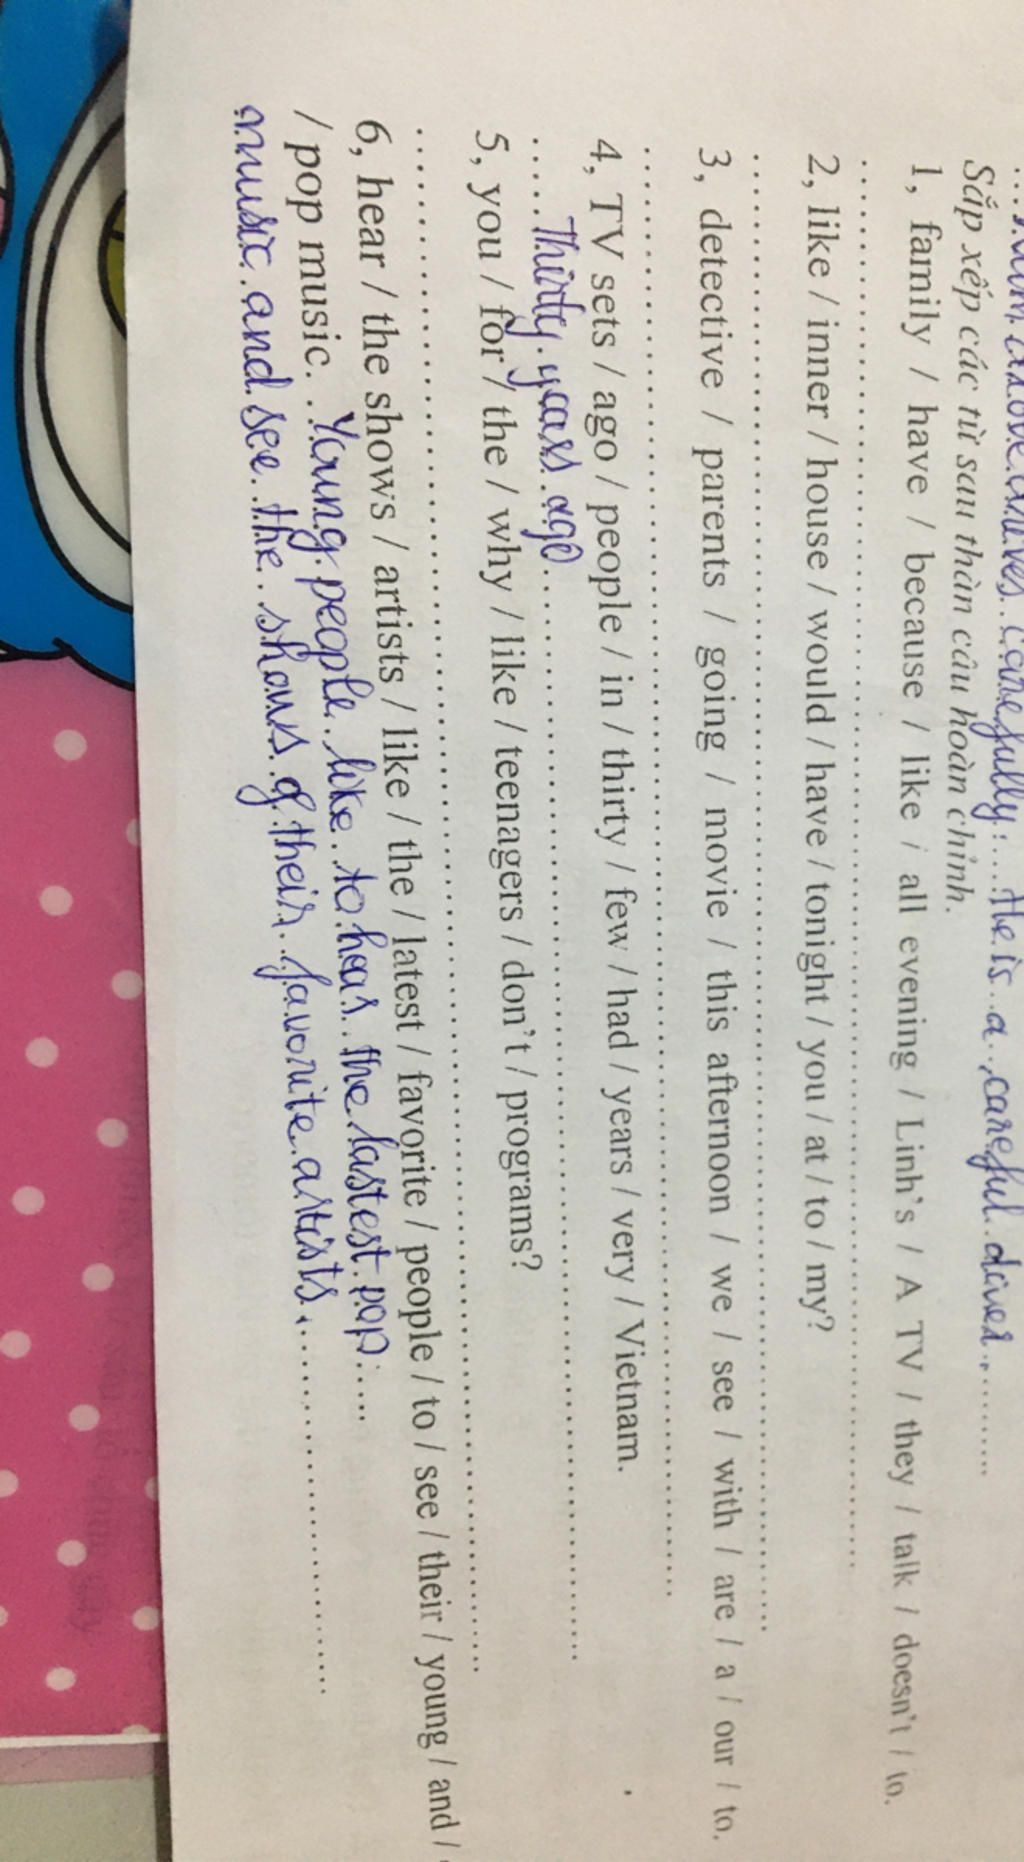 carefully:....He is..a..careful driver..........
Sắp xếp các từ sau thàn câu hoàn chỉnh.
1, family / have / because / like / all evening / Linh's / A TV / they / talk / doesn't / to.
2, like / inner / house / would / have / tonight / you / at / to / my?
3, detective / parents / going / movie / this afternoon / we / see / with / are / a / our / to.
4, TV sets / ago / people / in / thirty / few / had / years / very / Vietnam.
....Thirty.years.ago
5, you / for / the / why / like / teenagers / don't / programs?
6, hear / the shows / artists / like / the / latest / favorite / people / to / see / their / young / and /
/ pop music. ..Young.people.like..to.hear..the.lastest.pop.....
music.and.see..the..shows..of.their..favorite.artists.